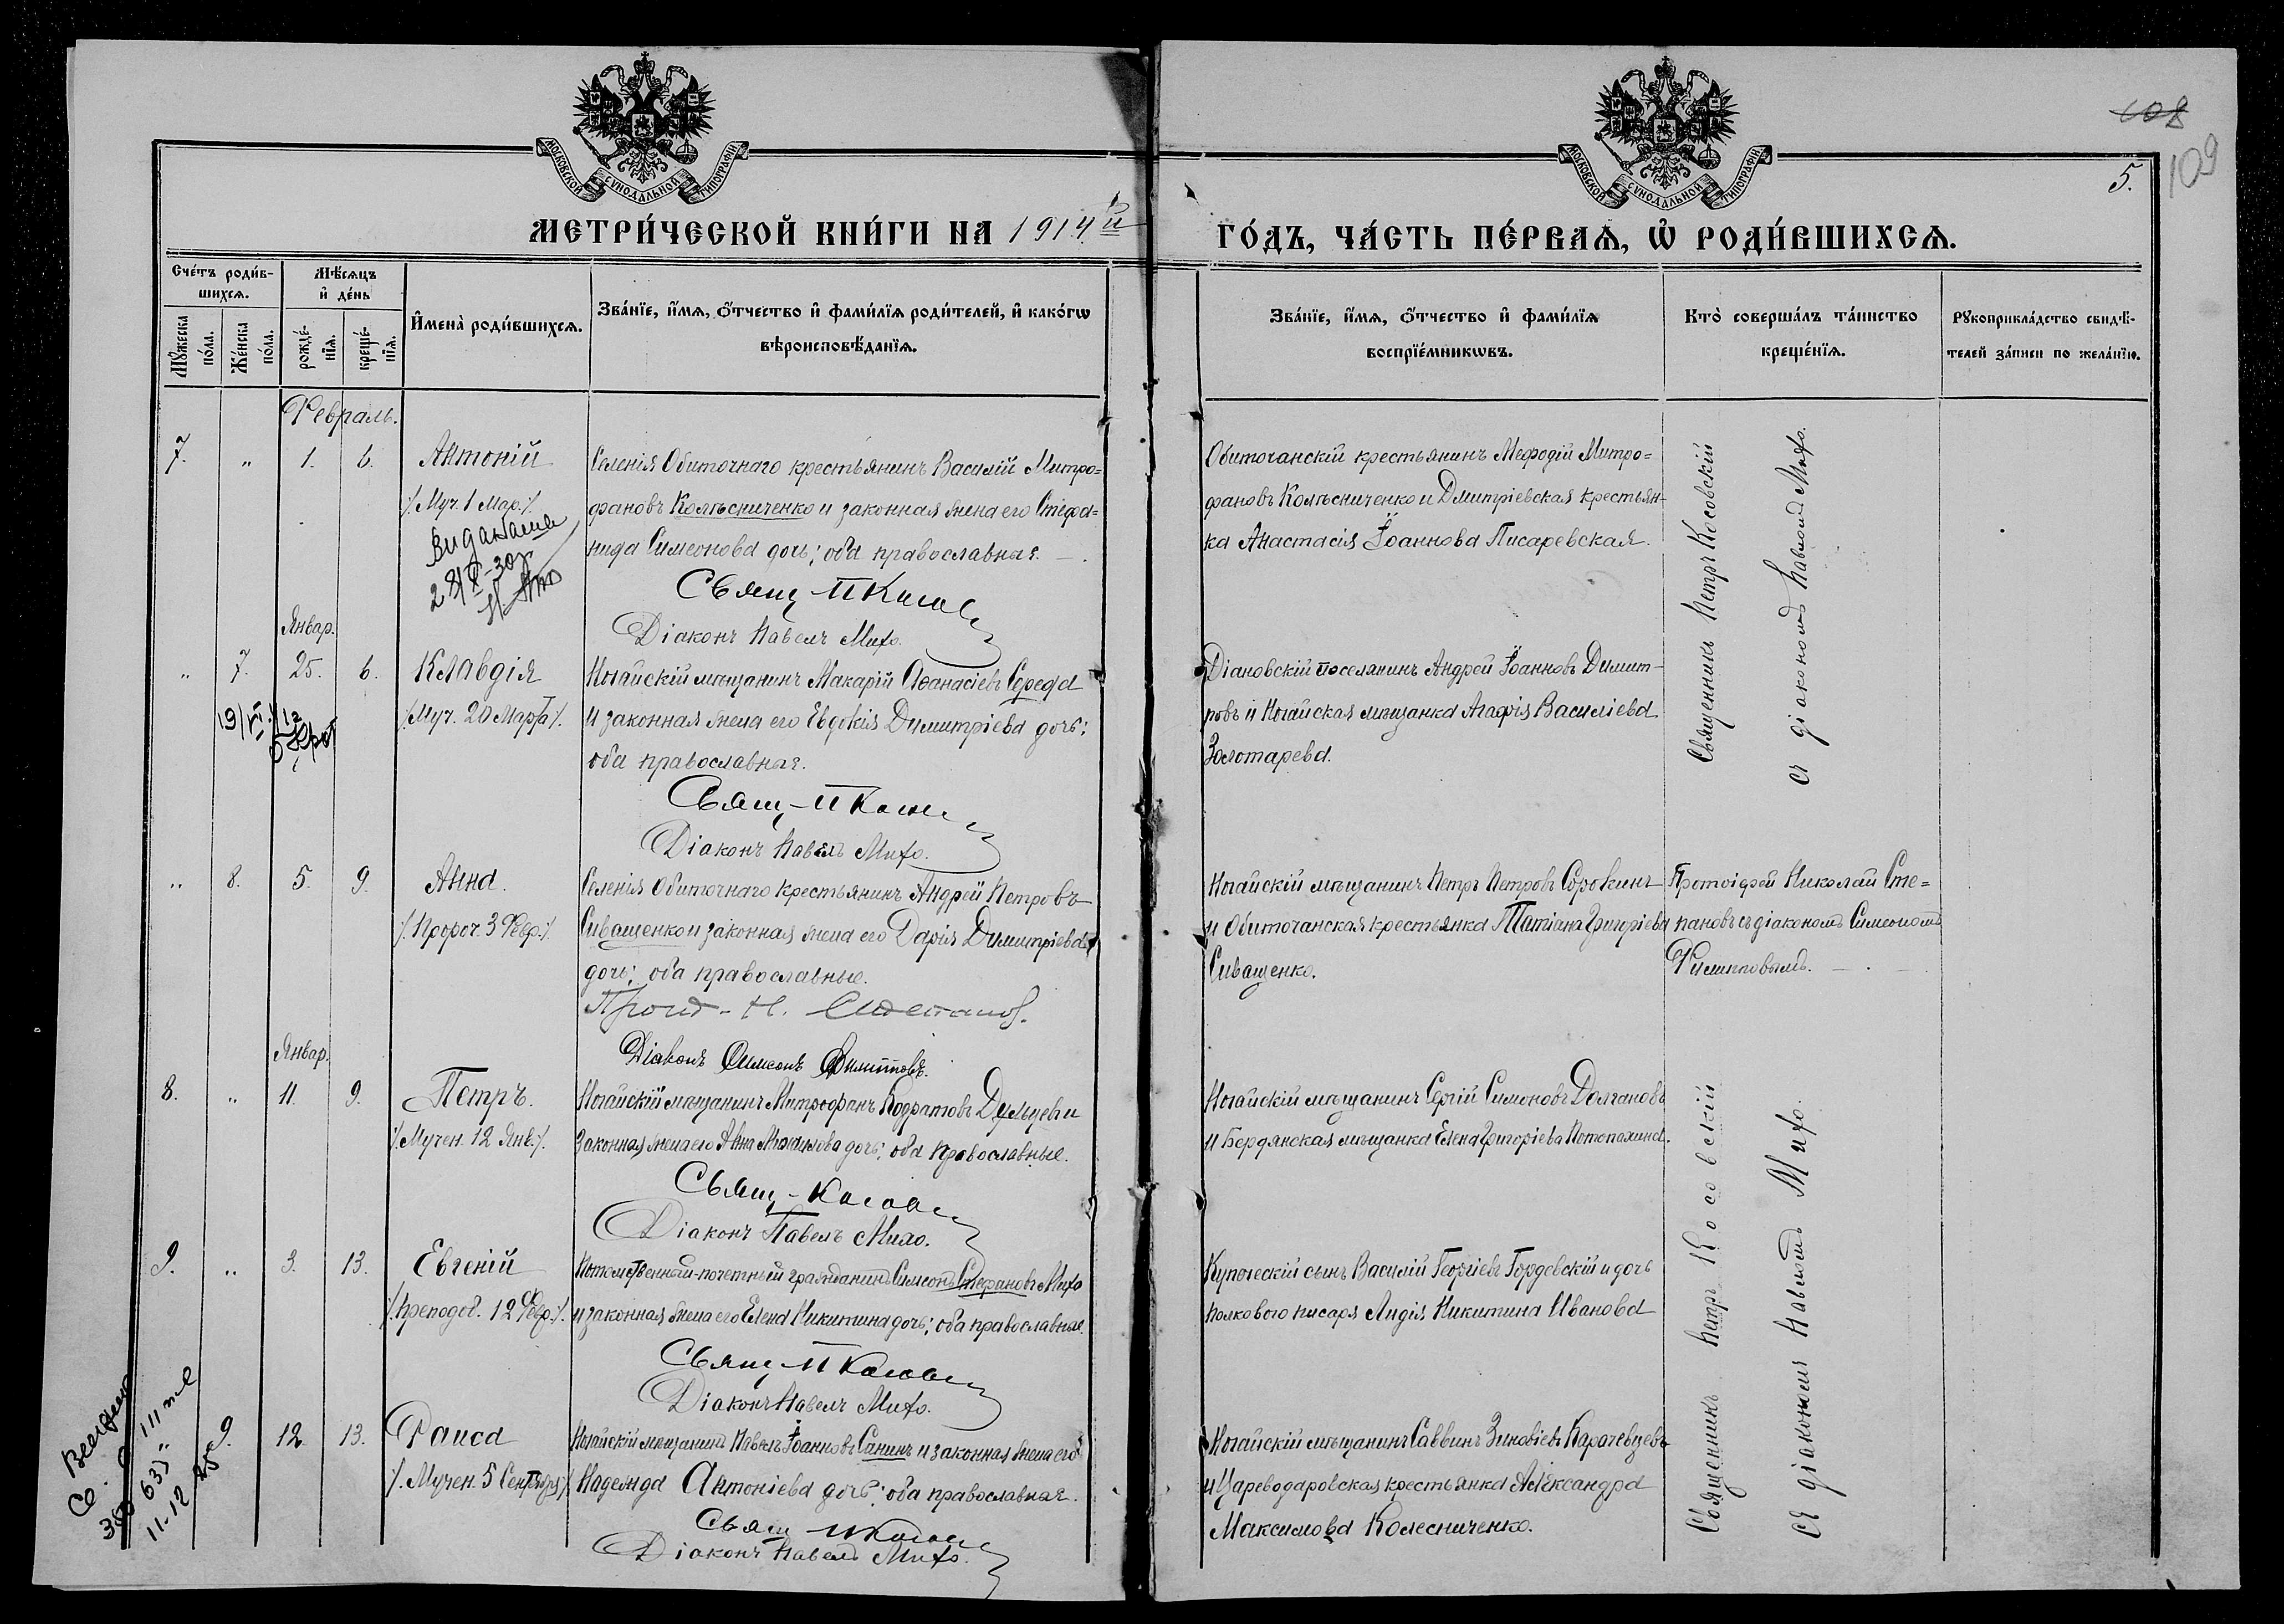 МОСКОВСКОЙ СѴНОДАЛЬНОЙ ТИПОГРАФІИ
МОСКОВСКОЙ СѴНОДАЛЬНОЙ ТИПОГРАФІИ
108
109
5.
МЕТРИ́ЧЕСКОЙ КНИ́ГИ НА 1914й
ГО́ДЪ, ЧА́СТЬ ПЕ́РВАѦ, Ѡ҆ РОДИ́ВШИХСѦ.
Сче́тъ роди́в-
шихсѧ.
Мѣ́сѧцъ
и҆ де́нь
Мꙋ́жеска
по́ла.
Же́нска
по́ла.
рожде́-
нїѧ.
креще́-
нїѧ.
И҆мена̀ роди́вшихсѧ.
Зва́нїе, и҆́мѧ, о҆́тчество и҆ фами́лїѧ роди́телей, и҆ како́гѡ
вѣроисповѣ́данїѧ.
Зва́нїе, и҆́мѧ, о҆́тчество и҆ фами́лїѧ
воспрїе́мникѡвъ.
Кто̀ соверша́лъ та́инство
креще́нїѧ.
Рꙋкоприкла́дство свидѣ́-
телей за́писи по жела́нїю.
Февраль.
7. „ 1. 6. Антоній
/. Муч. 1 Мар. /.
Видана
Селенія Обиточнаго крестьянинъ Василій Митро=
фановъ Колѣсниченко и законная жена его Стефа=
нида Симеонова дочь; оба православная.
Свящ П Косов
Діаконъ Павелъ Михо.
Обиточанскій крестьянинъ Мефодій Митро=
фановъ Колѣсниченко и Дмитріевская крестьян-
ка Анастасія Іоаннова Писаревская.
Священникъ Петръ Косовскій
съ діакономъ Павломъ Михо.
Январ.
„ 7. 25. 6. Клавдія
/. Муч. 20 Марта /.
Ногайскій мѣщанинъ Макарій Аѳанасіевъ Середа
и законная жена его Евдокія Димитріева дочь;
оба православныя.
Свящ П Косов
Діаконъ Павелъ Михо.
Діановскій поселянинъ Андрей Іоанновъ Димит-
ровъ и Ногайская мѣщанка Агафія Василіева
Золотарева.
„ 8. 5. 9. Анна.
/. Пророч. 3 Февр. /.
Селенія Обиточнаго крестьянинъ Андрей Петровъ
Сиващенко и законная жена его Дарія Димитріева
дочь; оба православные.
Прот. Н. Степанов.
Діаконъ Симеонъ Филиповъ.
Ногайскій мѣщанинъ Петръ Петровъ Сорокинъ
и Обиточанская крестьянка Татіана Григоріева
Сиващенко.
Протоіерей Николай Сте=
пановъ съ діакономъ Симеономъ
Филиповымъ.
Январ.
8. „ 11. 9. Петръ.
/. Мучен. 12 Янв. /.
Ногайскій мѣщанинъ Митрофанъ Кодратовъ Дульцевъ и
законная жена его Анна дочь; оба православные.
Свящ Косов
Діаконъ Павелъ Михо.
Ногайскій мѣщанинъ Сергій Симоновъ Долгановъ
и Бердянская мѣщанка Елена Григоріева Потопахина.
Священникъ Петръ Косовскій
съ діакономъ Павломъ Михо.
9. „ 3. 13. Евгеній
/. Преподоб. 12 Февр. /.
Потомственный-почетный гражданинъ Симеонъ Стефановъ Михо
и законная жена его Елена Никитина дочь; оба православные.
Свящ П Косов
Діаконъ Павелъ Михо.
Купеческій сынъ Василій Георгіевъ Гордовскій и дочь
полкового писаря Лидія Никитина Иванова
9. 12. 13. Раиса
/. Мучен. 5 Сентября /.
Ногайскій мѣщанинъ Павелъ Іоанновъ Санинъ и законная жена его
Надежда Антоніева дочь; оба православная.
Свящ П Косов
Діаконъ Павелъ Михо.
Ногайскій мѣщанинъ Саввинъ Зиновіевъ Карачевцевъ
и Цареводаровская крестьянка Александра
Максимова Колесниченко.